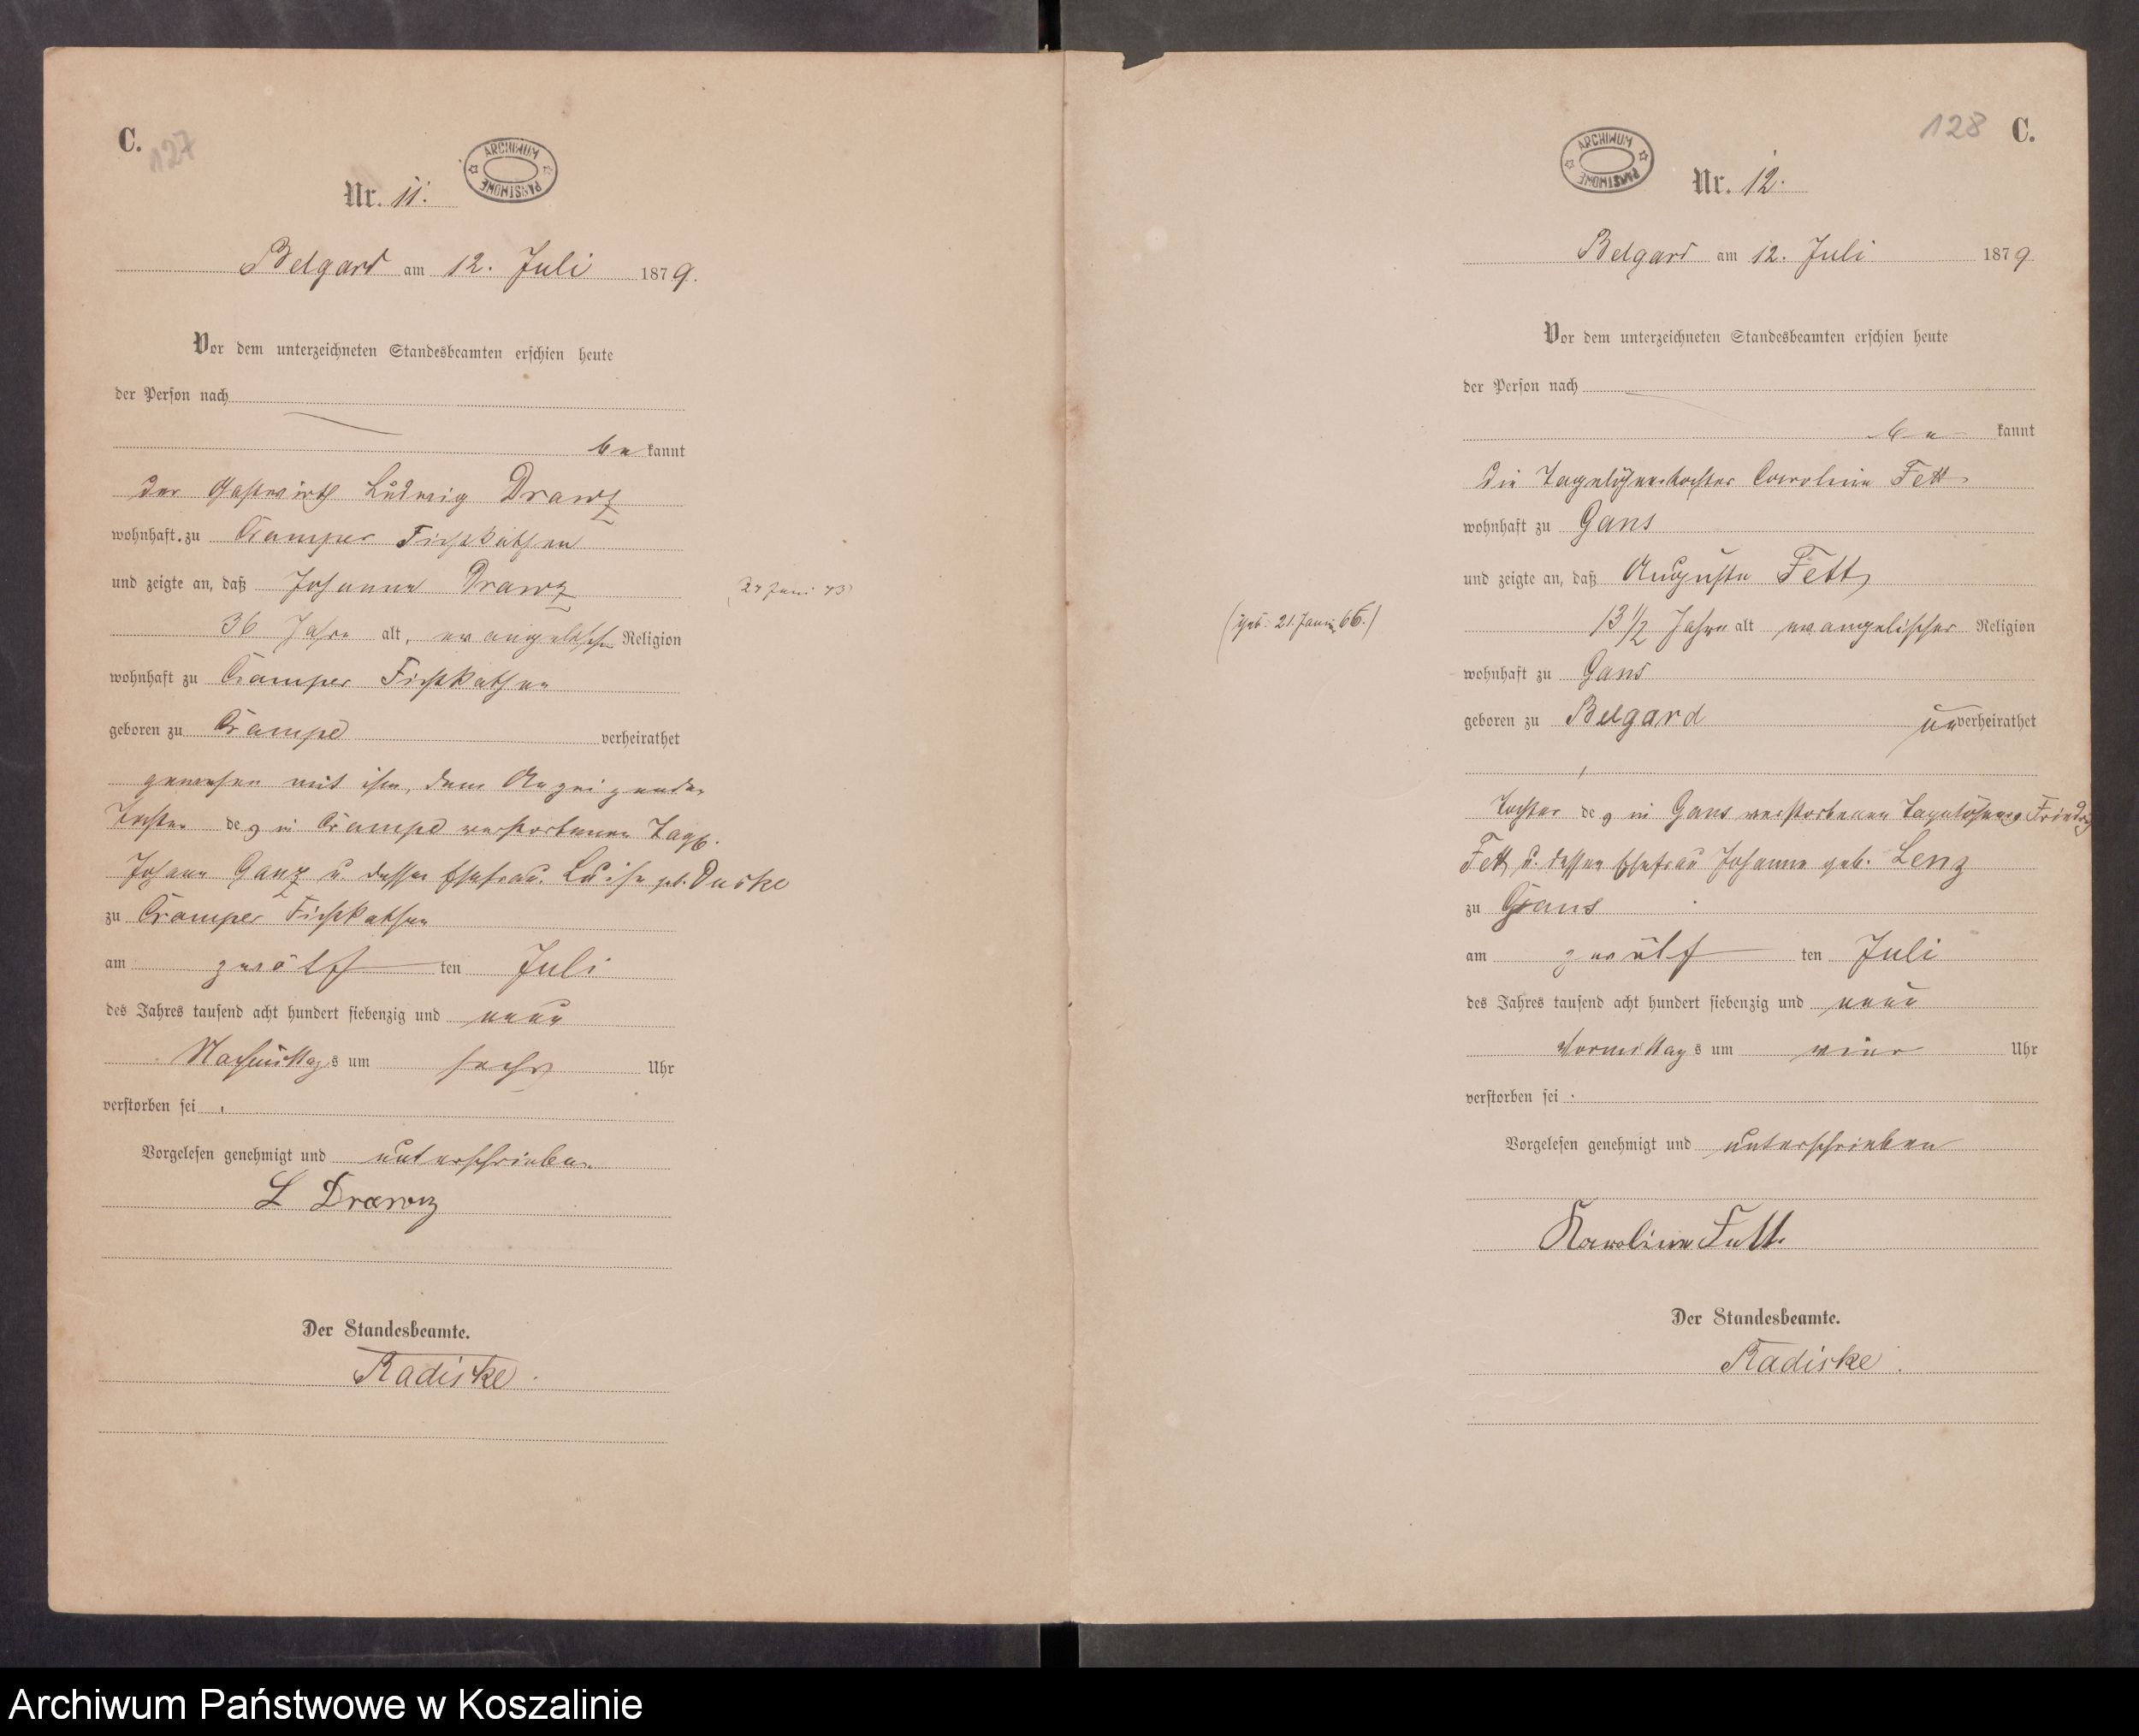 C.
127
ARCHIWUM PAŃSTWOWE
Nr. 11.
Belgard am 12. Juli 1879.
Vor dem unterzeichneten Standesbeamten erschien heute
der Person nach
be kannt
der Gastwirth Ludwig Drawz
wohnhaft zu Cramper Fischkathen
und zeigte an, daß Johanne Drawz
(27 Juni 43)
36 Jahre alt, evangelischer Religion
wohnhaft zu Cramper Fischkathen
geboren zu Crampe verheirathet
gewesen mit ihm, dem Anzeigenden
Tochter des in Crampe verstorbenen Tagl.
Johann Ganz u. dessen Ehefrau Luise geb. Duske
zu Cramper Fischkathen
am zwölf ten Juli
des Jahres tausend acht hundert siebenzig und neun
Nachmittags um sechs Uhr
verstorben sei
Vorgelesen genehmigt und unterschrieben
L Drawz
Der Standesbeamte.
Radiske.
128 C.
ARCHIWUM PAŃSTWOWE
Nr. 12.
Belgard am 12. Juli 1879
Vor dem unterzeichneten Standesbeamten erschien heute
der Person nach
be kannt
die Tagelöhnertochter Caroline Fett
wohnhaft zu Gans
und zeigte an, daß Auguste Fett,
(geb. 21. Januar 66.)
13 1/2 Jahre alt evangelischer Religion
wohnhaft zu Gans
geboren zu Belgard unverheirathet
Tochter des in Gans verstorbenen Tagelöhners Friedrich
Fett u. dessen Ehefrau Johanne geb. Lenz
zu Gans
am zwölf ten Juli
des Jahres tausend acht hundert siebenzig und neun
Vormittags um vier Uhr
verstorben sei.
Vorgelesen genehmigt und unterschrieben
Karoline Fett.
Der Standesbeamte.
Radiske.
Archiwum Państwowe w Koszalinie